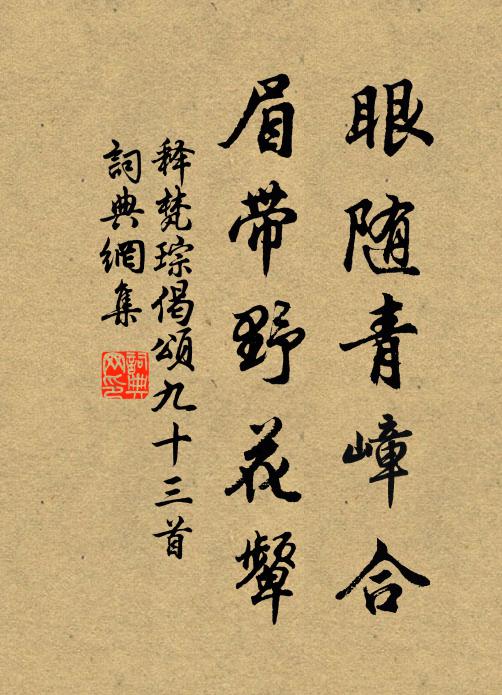 眼随青嶂合
眉带野花颦
释梵琮偈颂九十三首
词典網集
詞典網印